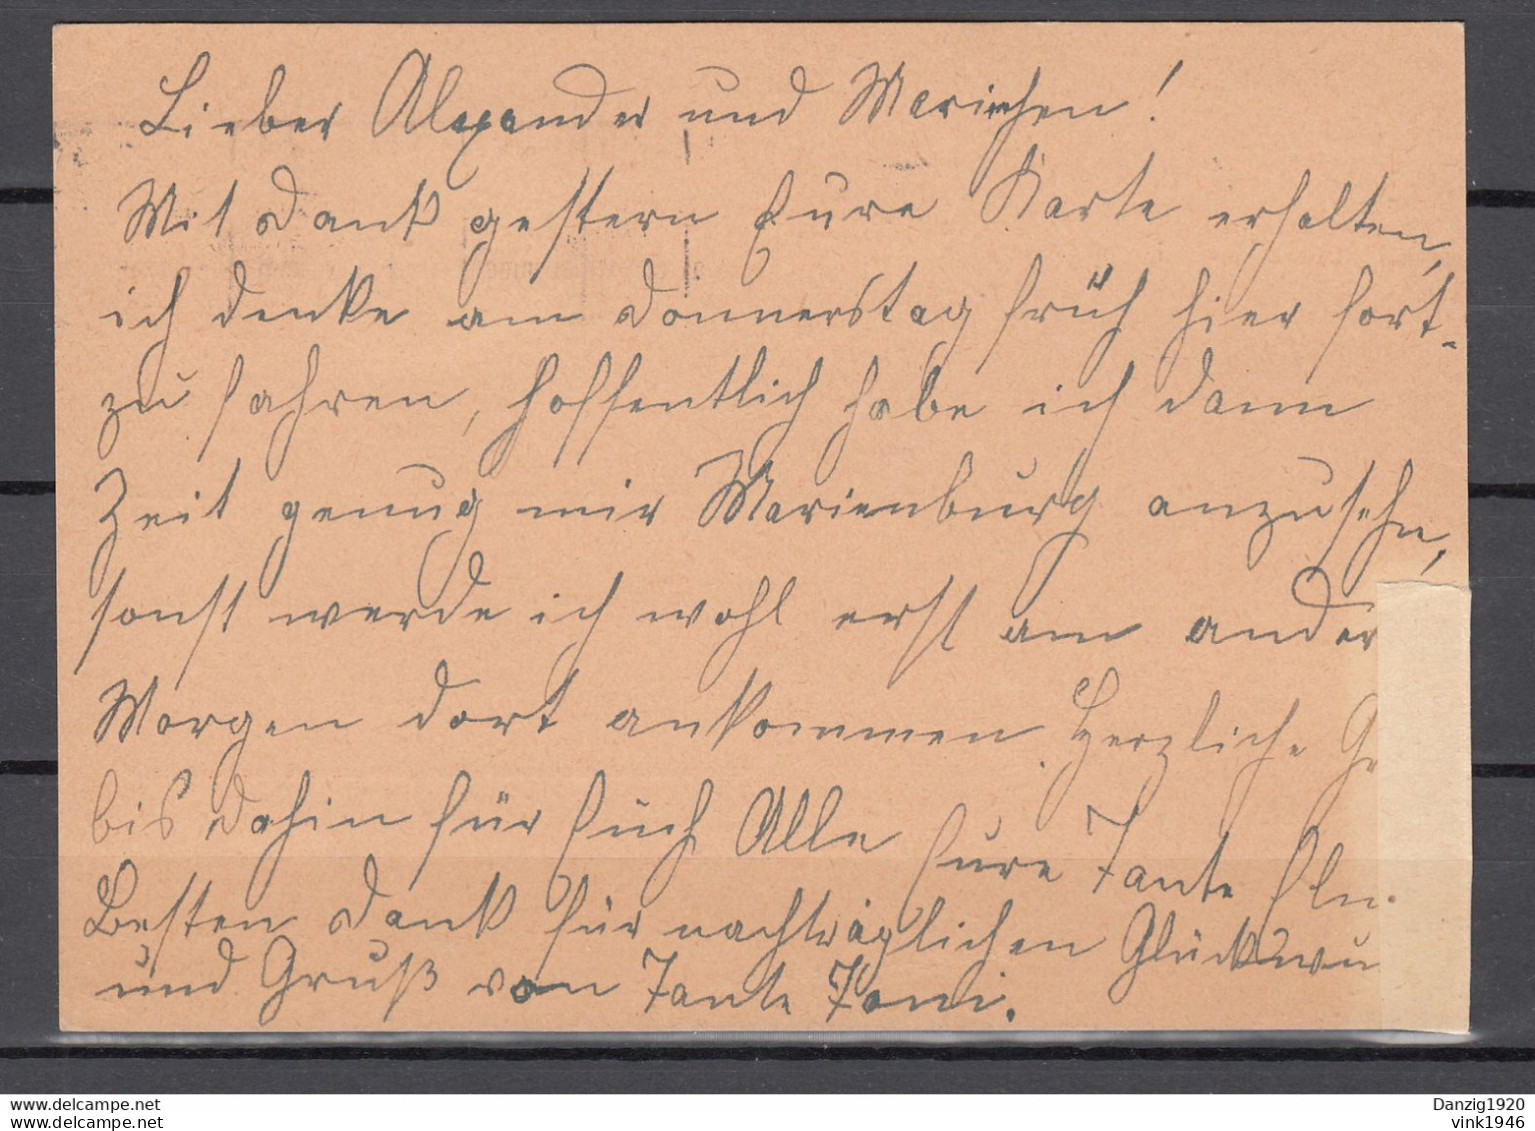 Lieber Alexander und Mariechen!
Mit Dank gestern Eure Karte erhalten,
ich denke am Donnerstag früh hier fort-
zu fahren, hoffentlich habe ich dann
Zeit genug mir Marienburg anzusehn,
sonst werde ich wohl erst am ander
Morgen dort ankommen. Herzliche G
bis dahin für Euch Alle Eure Tante
Besten Dank für nachträglichen Glückwu
und Gruß von Tante Toni.
Danzig1920
vink1946
Danzig1920
vink1946